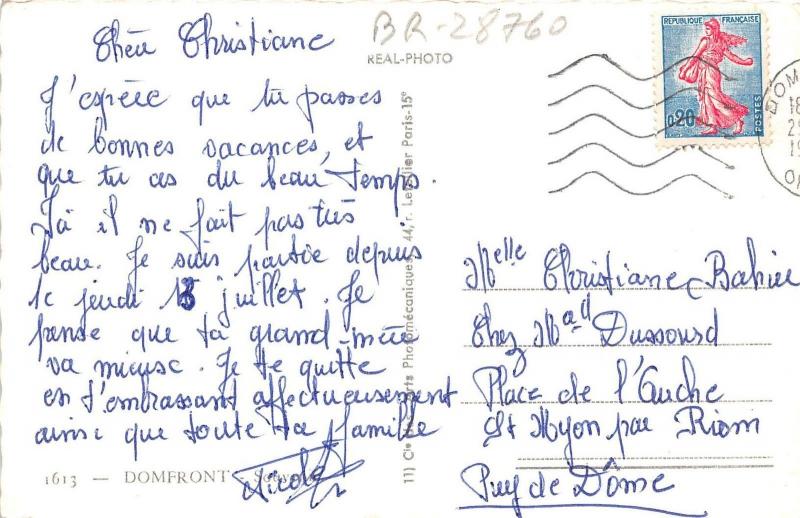 BR-28760
REAL-PHOTO
REPUBLIQUE FRANÇAISE
0,20
POSTES
Chère Christiane
J'espère que tu passes
de bonnes vacances, et
que tu as du beau temps.
Ici il ne fait pas très
beau. Je suis partie depuis
le jeudi 13 juillet. Je
pense que ta grand-mère
va mieux. Je te quitte
en t'embrassant affectueusement
ainsi que toute ta famille
Nicole
1613 — DOMFRONT
Arts Photomécaniques, 44, r. Letellier Paris-15e
Melle Christiane
Chez Mad
Place de l'Ouche
St Myon par Riom
Puy de Dôme